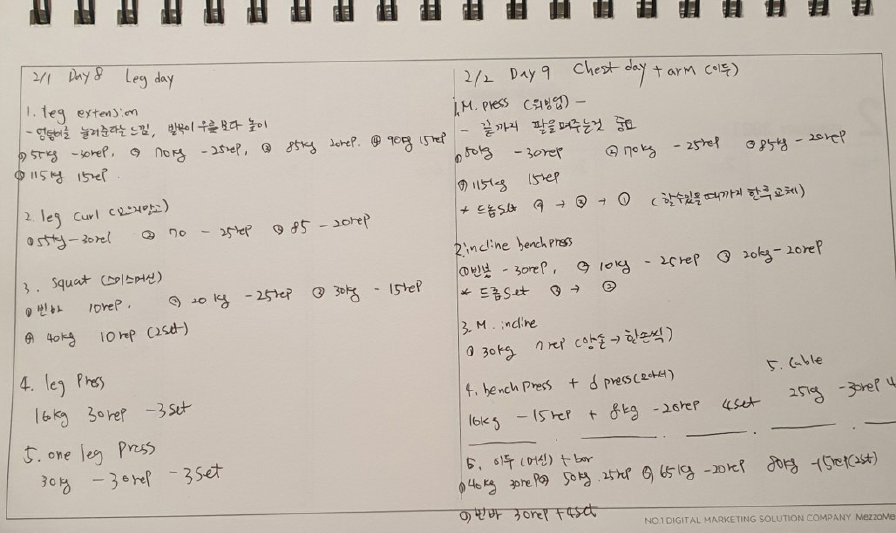 2/1 Day 8 Leg day
1. leg extension
- 엉덩이를 눌러준다는 느낌, 발목이 무릎보다 높이
① 55kg -30rep, ② 70kg -25rep, ③ 85kg 20rep. ④ 90kg 15rep
⑤ 115kg 15rep.
2. leg curl
① 55kg-30rep ② 70 - 25rep ③ 85 - 20rep
3. Squat (스미스머신)
① 빈바 10rep. ② 20kg -25rep ③ 30kg - 15rep
④ 40kg 10rep (2set)
4. leg press
16kg 30rep -3set
5. one leg press
30kg -30rep -3set
2/2 Day 9 Chest day + arm (이두)
1. M. press (워밍업) -
- 끝까지 팔을 펴주는것 중요
① 50kg -30rep ② 70kg - 25rep ③ 85kg - 20rep
④ 115kg 15rep
* 드롭set ④ → ③ → ① (할수있을때까지 한쪽 교체)
2. incline bench press
① 빈봉 -30rep, ② 10kg - 25rep ③ 20kg-20rep
* 드롭set ③ → ②
3. M. incline
① 30kg 7rep (양손→한손씩)
4. bench press + d press
16kg -15rep + 8kg -20rep 4set
5. Cable
25kg -30rep 4
6. 이두 (머신) + bar
① 40kg 30rep ② 50kg .25rep ③ 65kg -20rep 80kg -15rep(2set)
① 빈바 30rep + 4set
NO.1 DIGITAL MARKETING SOLUTION COMPANY MezzoMe